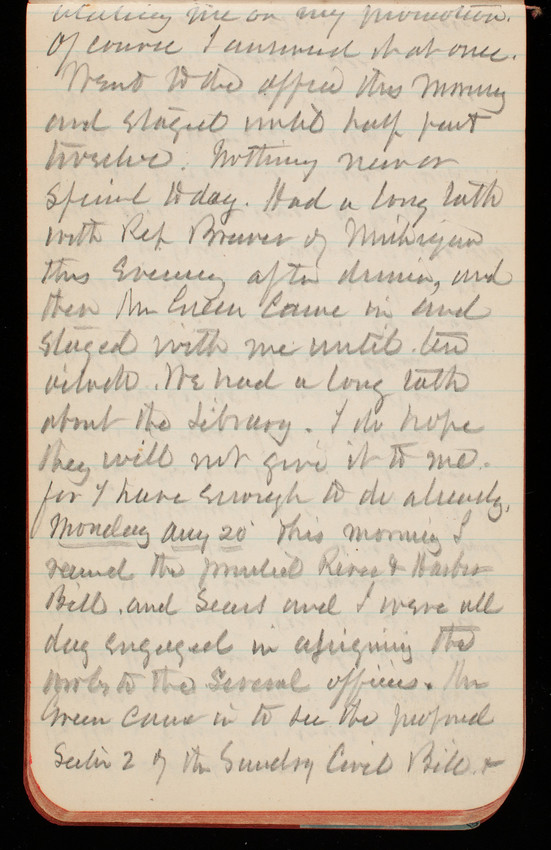 me on my promotion.
Of course I answered it at once.
Went to the office this morning
and staged until half past
twelve. Nothing new or
special today. Had a long talk
with Rep Brewer of Michigan
this Evening after dinner, and
then Mr Green came in and
staged with me until ten
oclock. We had a long talk
about the Library. I do hope
they will not give it to me.
for I have enough to do already.
Monday Aug 20 This morning I
recued the printed River & Harbor
Bill. and Sears and I were all
day engaged in assigning the
works to the several offices. Mr
Green came in to see the proposed
Section 2 of the Sundry Civil Bill. &